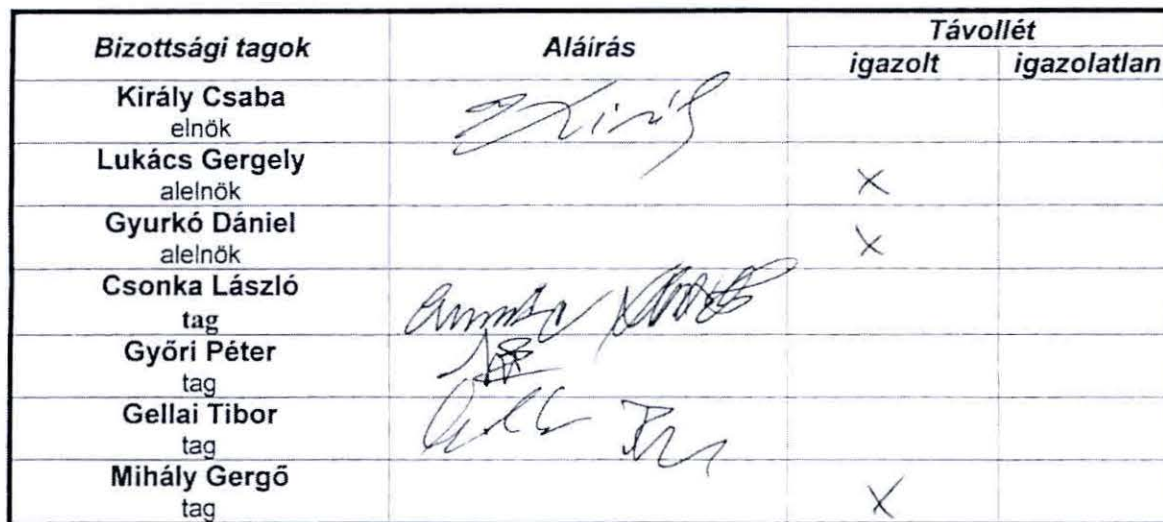 Bizottsági tagok Aláírás Távollét
igazolt igazolatlan
Király Csaba
elnök
Lukács Gergely
alelnök X
Gyurkó Dániel
alelnök X
Csonka László
tag
Győri Péter
tag
Gellai Tibor
tag
Mihály Gergő
tag X